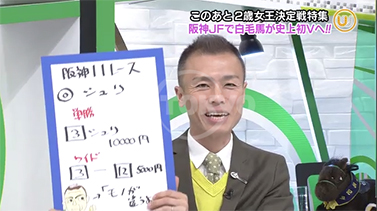 このあと2歳女王決定戦特集
阪神JFで白毛馬が史上初Vへ!!
阪神11レース
◎ シュリ
単勝
3 シュリ
10000円
ワイド
3 ー 12 5000円
→「モノが
違う」